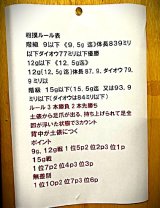 相撲ルール表
階級 9以下《9,5g迄》体長839ミリ
以下ダイオウ77ミリ以下優勝
12g以下《12,5g迄
12g(12,5g迄体長87,9,ダイオウ79,
9ミリ以
階級 15g以下(15,5g迄 又は93,9
ミリ以下ダイオウ以下
ルール3本勝負2本先勝ち
土俵から足爪が出る,持ち上げられて足全
部が浮いた状態で3カウント
背中が土俵につく
ポイント
9g, 12g 1位5p2位2p3位1p
15g戦
1位7p2位4p3位3p
無差別
1位10p2位7p3位6p